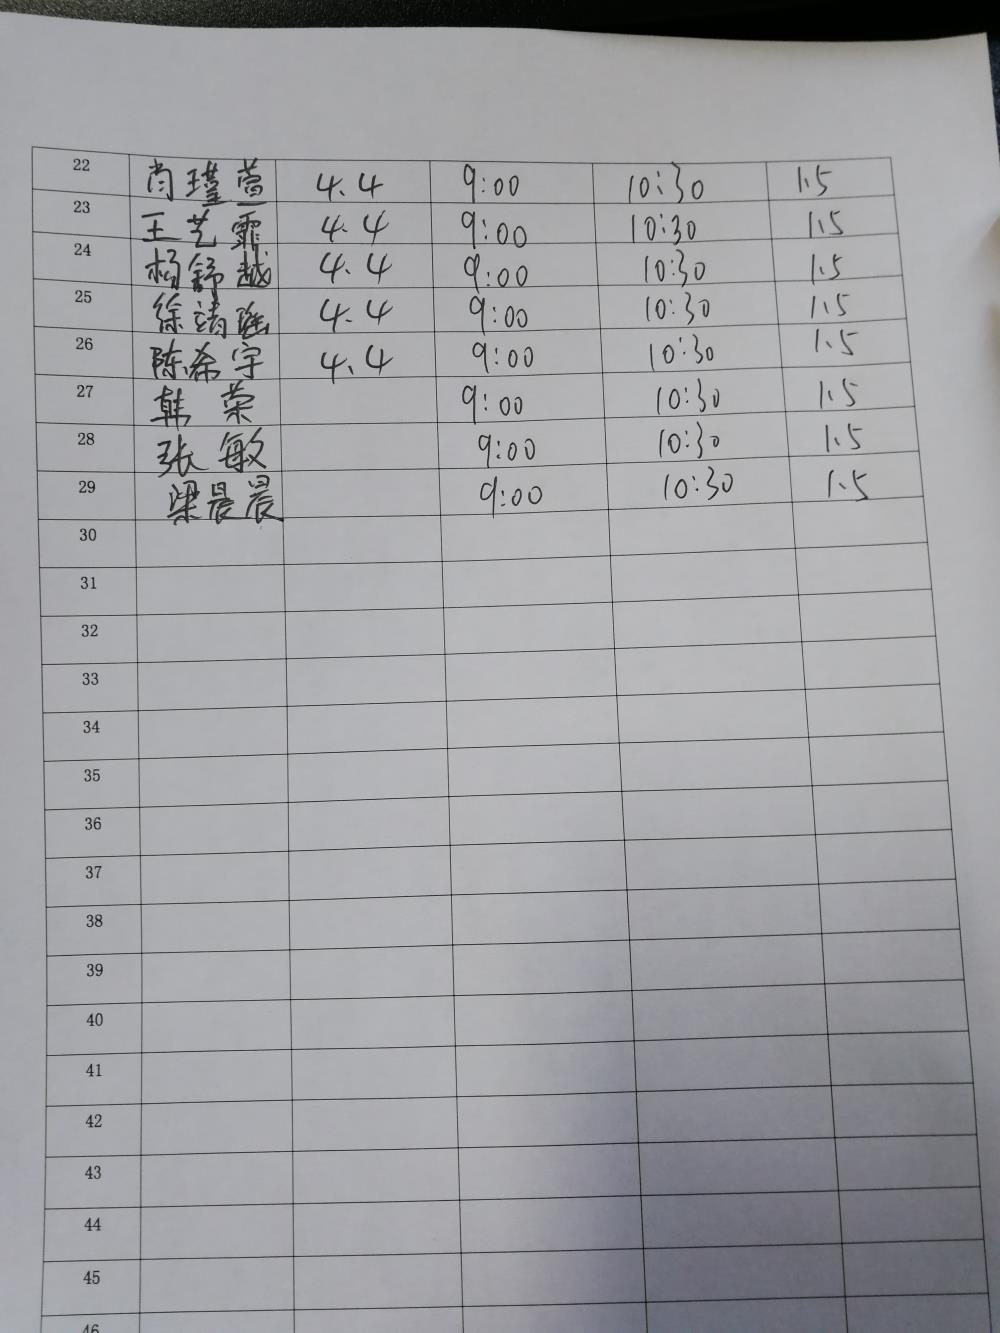 22 肖瑾萱 4.4 9:00 10:30 1.5
23 王艺霏 4.4 9:00 10:30 1.5
24 杨舒越 4.4 9:00 10:30 1.5
25 徐靖瑶 4.4 9:00 10:30 1.5
26 陈希宇 4.4 9:00 10:30 1.5
27 韩荣 9:00 10:30 1.5
28 张敏 9:00 10:30 1.5
29 梁晨晨 9:00 10:30 1.5
30
31
32
33
34
35
36
37
38
39
40
41
42
43
44
45
46